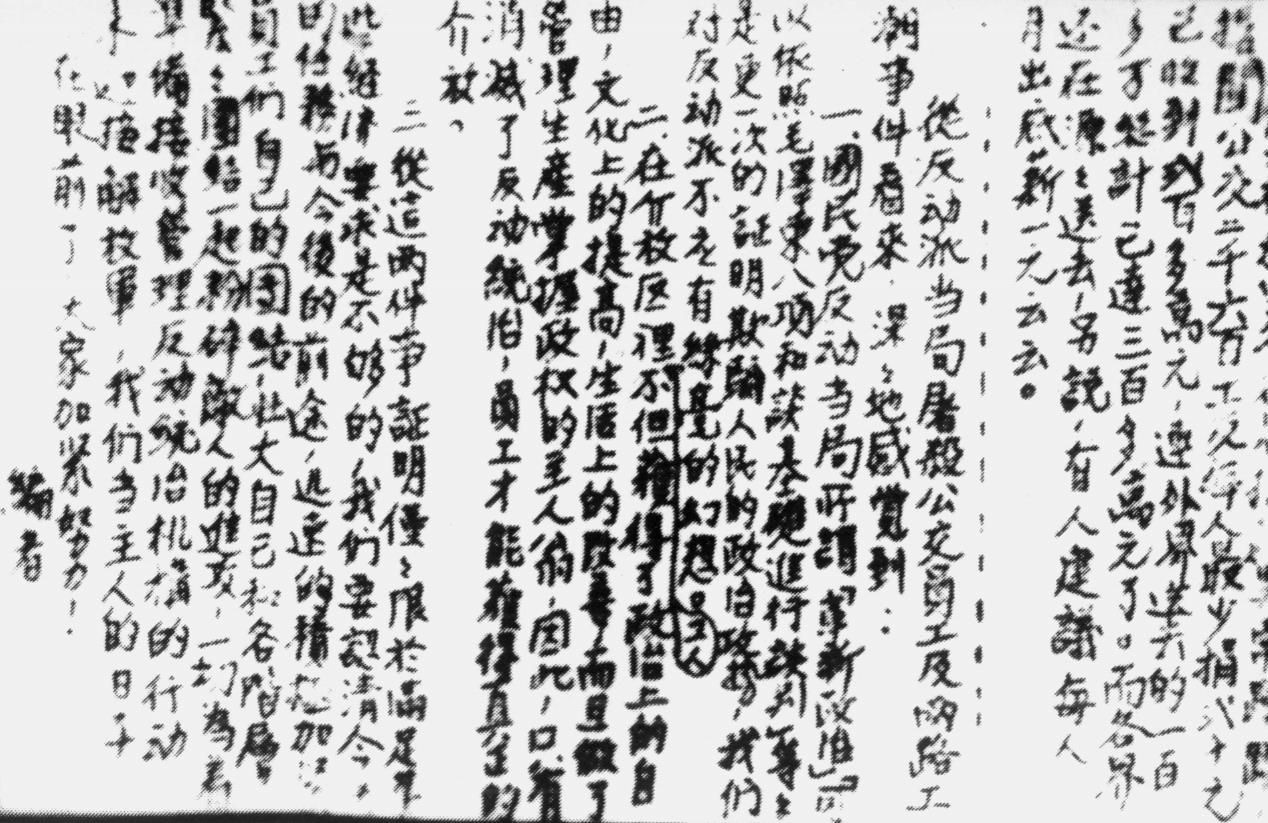 公交二千六百工友每人最少捐八十元
已收到數百多萬元，連外界送去的一百
多万總計已達三百多萬元了。而各界
还在源源送去，另説，有人建議每人
月出底薪一元云云。
從反动派当局屠殺公交員工及兩路工
潮事件看來，深深地感覺到：
一、國民党反动当局所謂「革新政治」可
以依照毛澤東八項和談基礎進行談判等等
是更一次的証明欺騙人民的政治政策，我們
对反动派不应有絲毫的幻想
二、在介放区裡不但獲得了政治上的自
由，文化上的提高，生活上的改善，而且做了
管理生產掌握政权的主人翁，因此，只有
消滅了反动統治，員工才能獲得真正的
介放。
三從這兩件事証明僅僅限於滿足某
些經濟要求是不够的，我们要認清今
的任務与今後的前途，迅速的積極加
員工們自己的团結，壯大自己和各階層
緊緊團結一起粉碎敵人的進攻，一切為着
準備接收管理反动統治机構的行动
迎接解放軍，我们当主人的日子
在眼前了 大家加緊努力！
編者